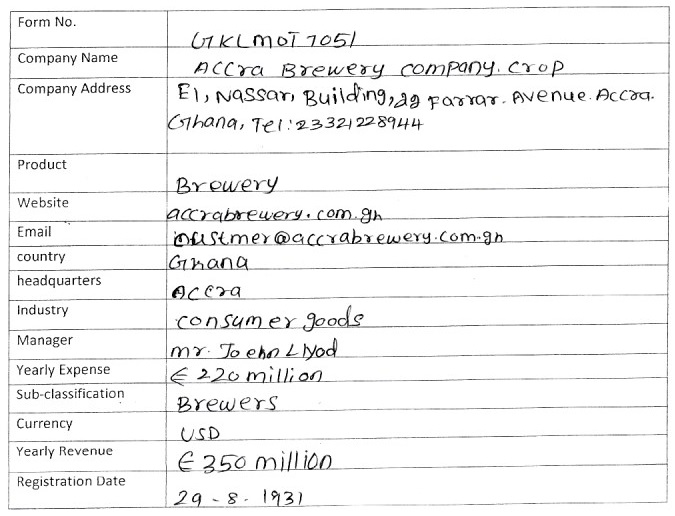 Form No. GKLMOT7051
Company Name ACCra Brewery company. Crop
Company Address El, Nassar, Building, 29 Farrar. Avenue. Accra.
Ghana, Tel: 23321228944
Product Brewery
Website accrabrewery.com.gh
Email @accrabrewery.com.gh
country Ghana
headquarters Accra
Industry consumer goods
Manager mr. Joehn Llyod
Yearly Expense € 220 million
Sub-classification Brewers
Currency USD
Yearly Revenue € 350 million
Registration Date 29-8-1931